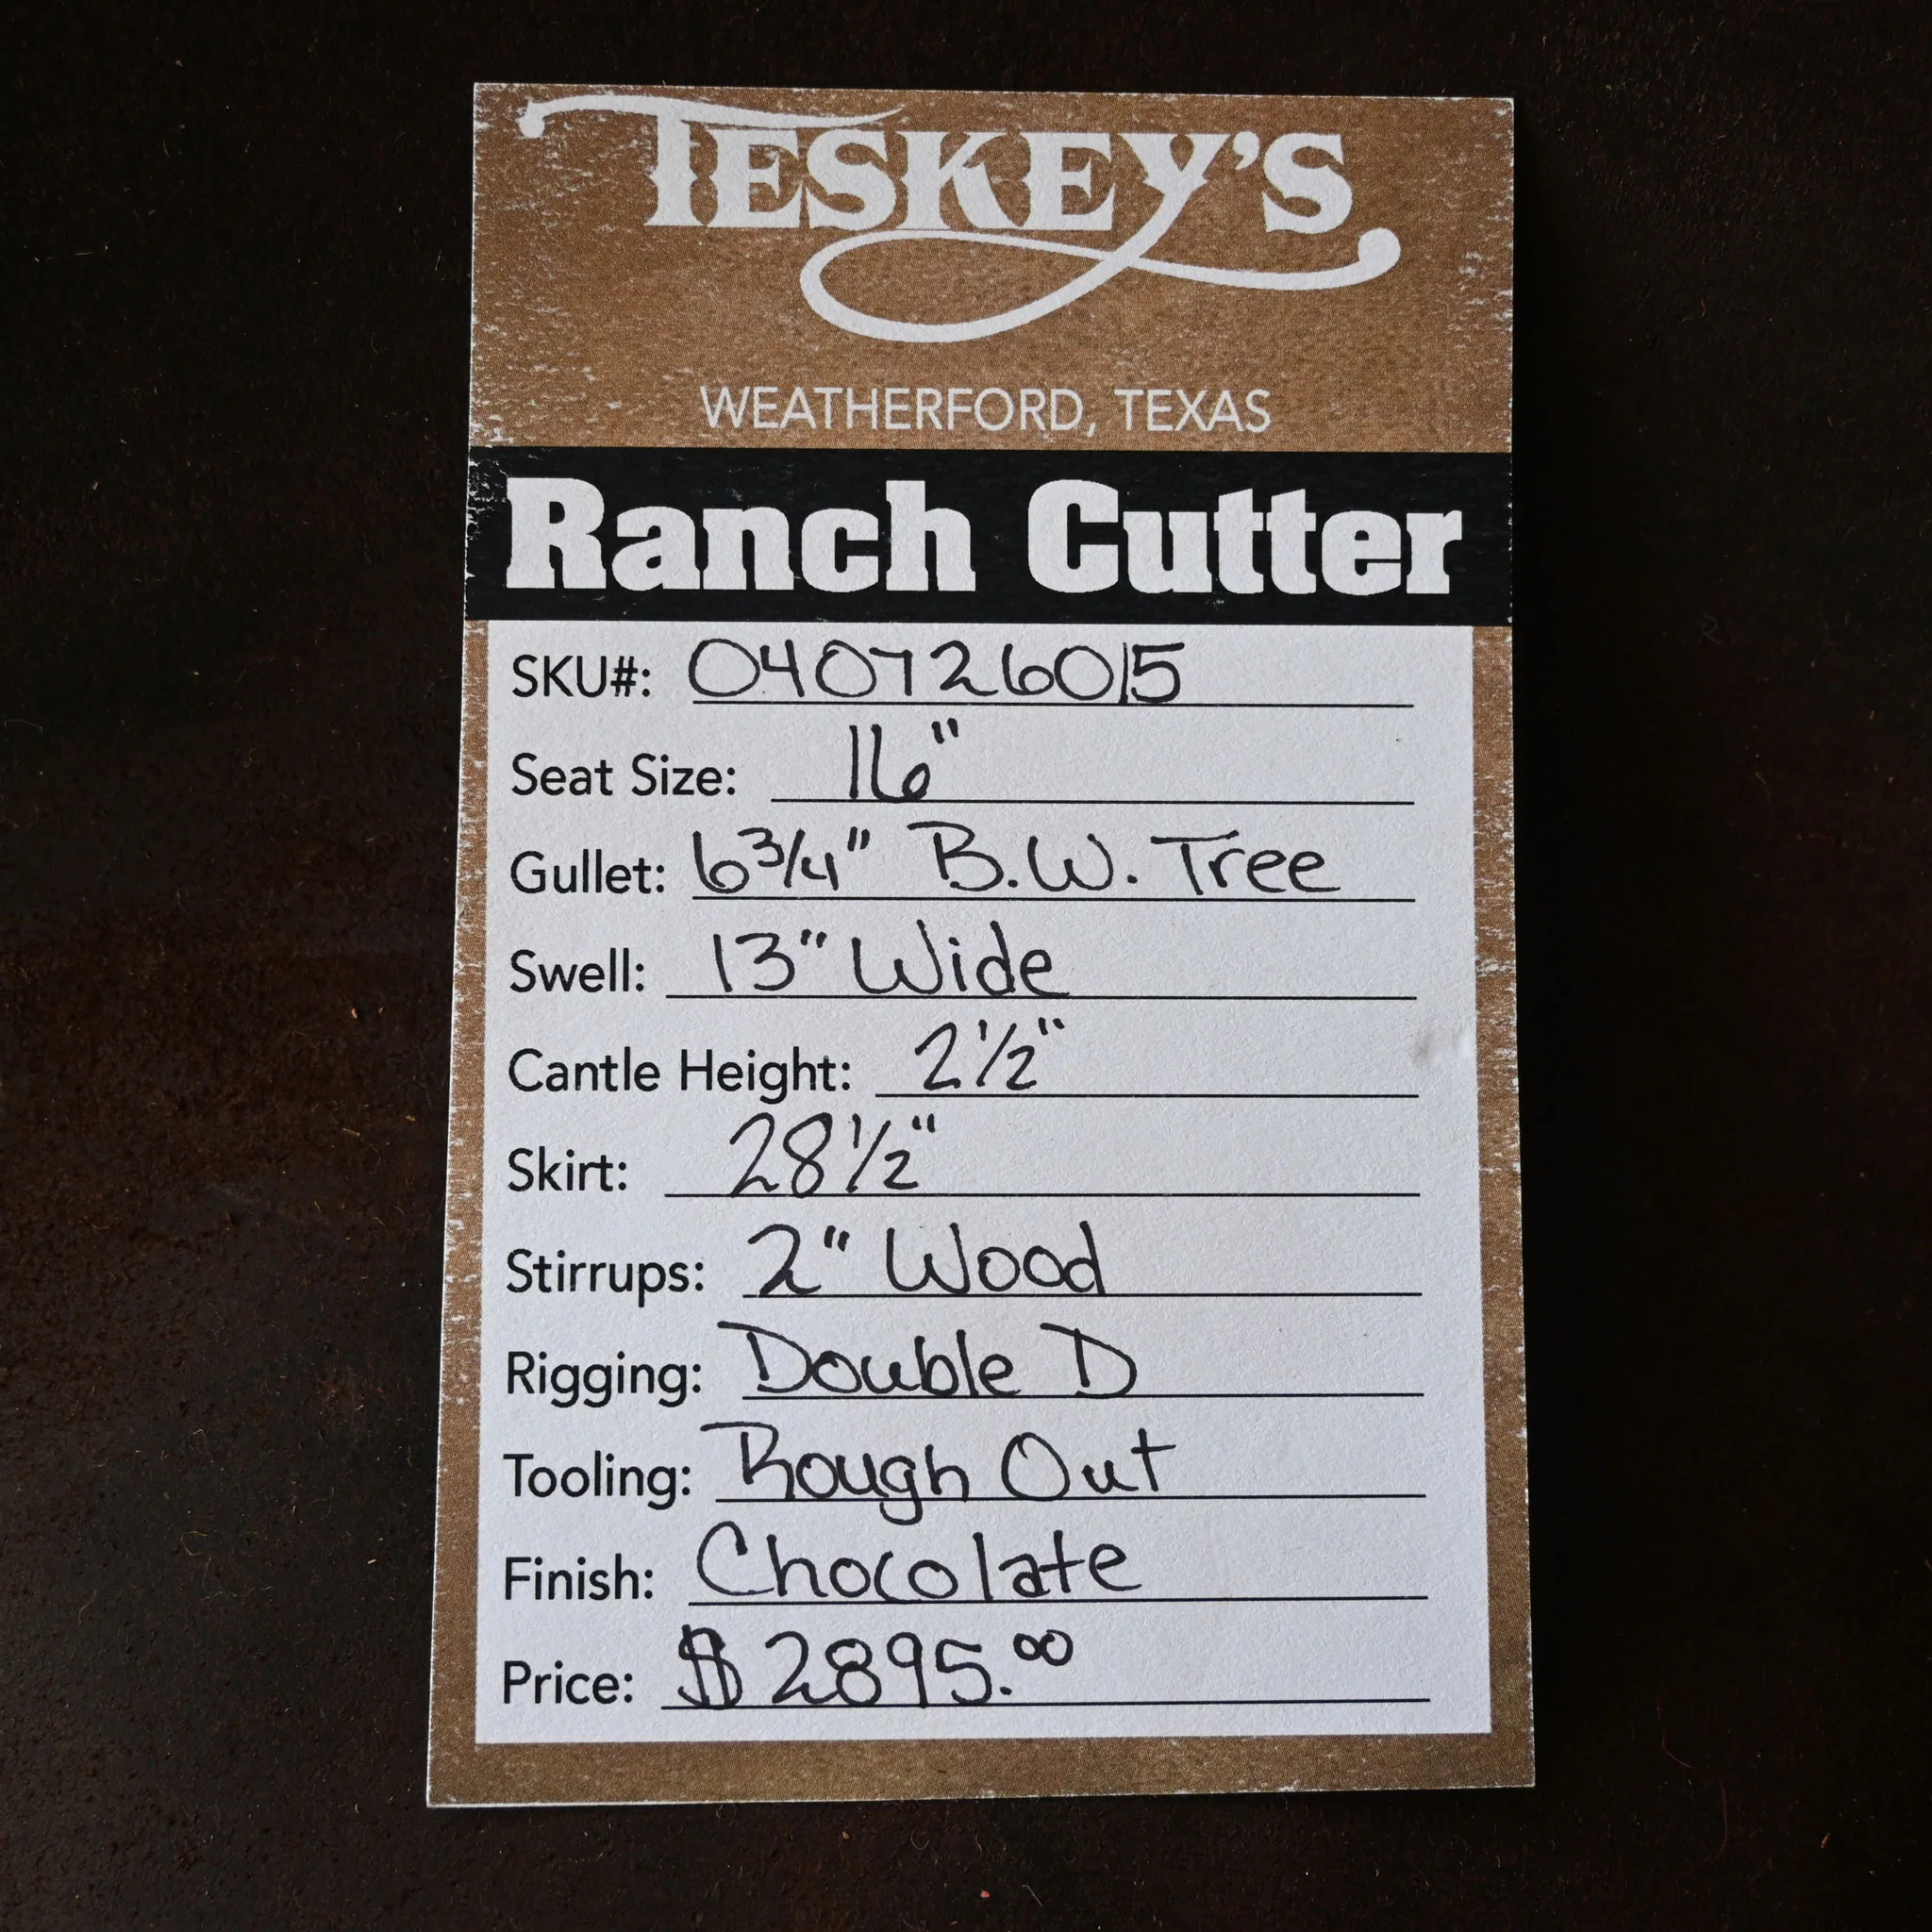 TESKEY'S
WEATHERFORD, TEXAS
Ranch Cutter
SKU#: 0407726015
Seat Size: 16"
Gullet: 6 3/4" B.W. Tree
Swell: 13" Wide
Cantle Height: 2 1/2"
Skirt: 28 1/2"
Stirrups: 2" Wood
Rigging: Double D
Tooling: Rough Out
Finish: Chocolate
Price: $2895.00